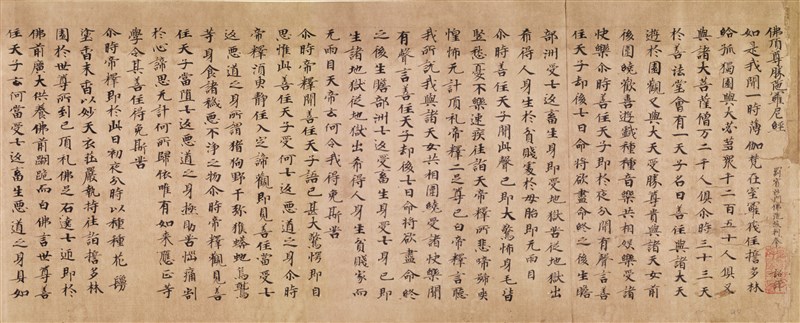 佛頂尊勝陀羅尼經
罽賓沙門佛陀波利奉 詔譯
如是我聞一時薄伽梵在室羅筏住誓多林
給孤獨園與大苾芻衆千二百五十人俱又
與諸大菩薩僧万二千人俱尒時三十三天
於善法堂會有一天子名曰善住與諸大天
遊於園觀又與大天受勝尊貴與諸天女前
後圍繞歡喜遊戲種種音樂共相娛樂受諸
快樂尒時善住天子即於夜分聞有聲言善
住天子却後七日命將欲盡命終之後生贍
部洲受七返畜生身即受地獄苦從地獄出
希得人身生於貧賤處於母胎即无兩目
尒時善住天子聞此聲已即大驚怖身毛皆
竪愁憂不樂速疾往詣天帝釋所悲啼號哭
惶怖无計頂礼帝釋二足尊已白帝釋言聽
我所說我與諸天女共相圍繞受諸快樂聞
有聲言善住天子却後七日命將欲盡命終
之後生贍部洲七返受畜生身受七身已即
生諸地獄從地獄出希得人身生貧賤家而
无兩目天帝云何令我得免斯苦
尒時帝釋聞善住天子語已甚大驚愕即自
思惟此善住天子受何七返惡道之身尒時
帝釋須臾靜住入定諦觀即見善住當受七
返惡道之身所謂猪狗野干獼猴蟒虵烏鷲
等身食諸穢惡不淨之物尒時帝釋觀見善
住天子當墮七返惡道之身極助苦惱痛割
於心諦思无計何所歸依唯有如來應正等
學令其善住得免斯苦
尒時帝釋即於此日初夜分時以種種花鬘
塗香末香以妙天衣莊嚴執持往詣誓多林
園於世尊所到已頂礼佛足右遶七迊即於
佛前廣大供養佛前䠒跪而白佛言世尊善
住天子云何當受七返畜生惡道之身具如